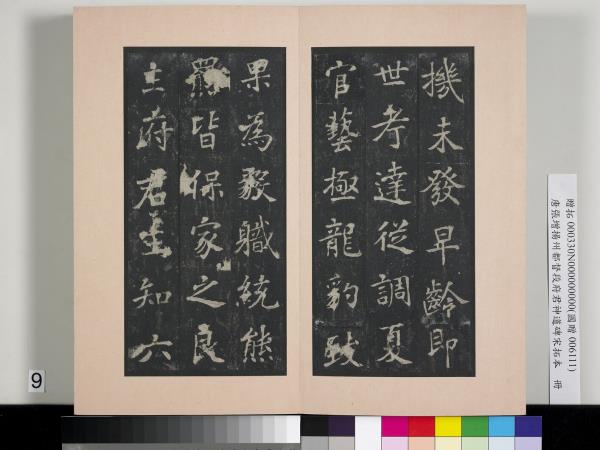 機未發早齡即
世考達從調夏
官藝極龍豹致
果為毅職統熊
羆皆保家之良
主府君生知六
贈拓 000330N000000000(國贈 006111)
唐張增揚州都督段府君神道碑宋拓本 冊
9